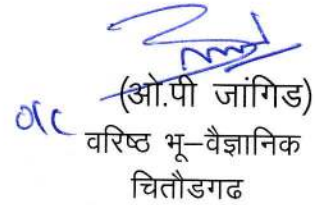 (ओ.पी जांगिड)
वरिष्ठ भू–वैज्ञानिक
चितौडगढ